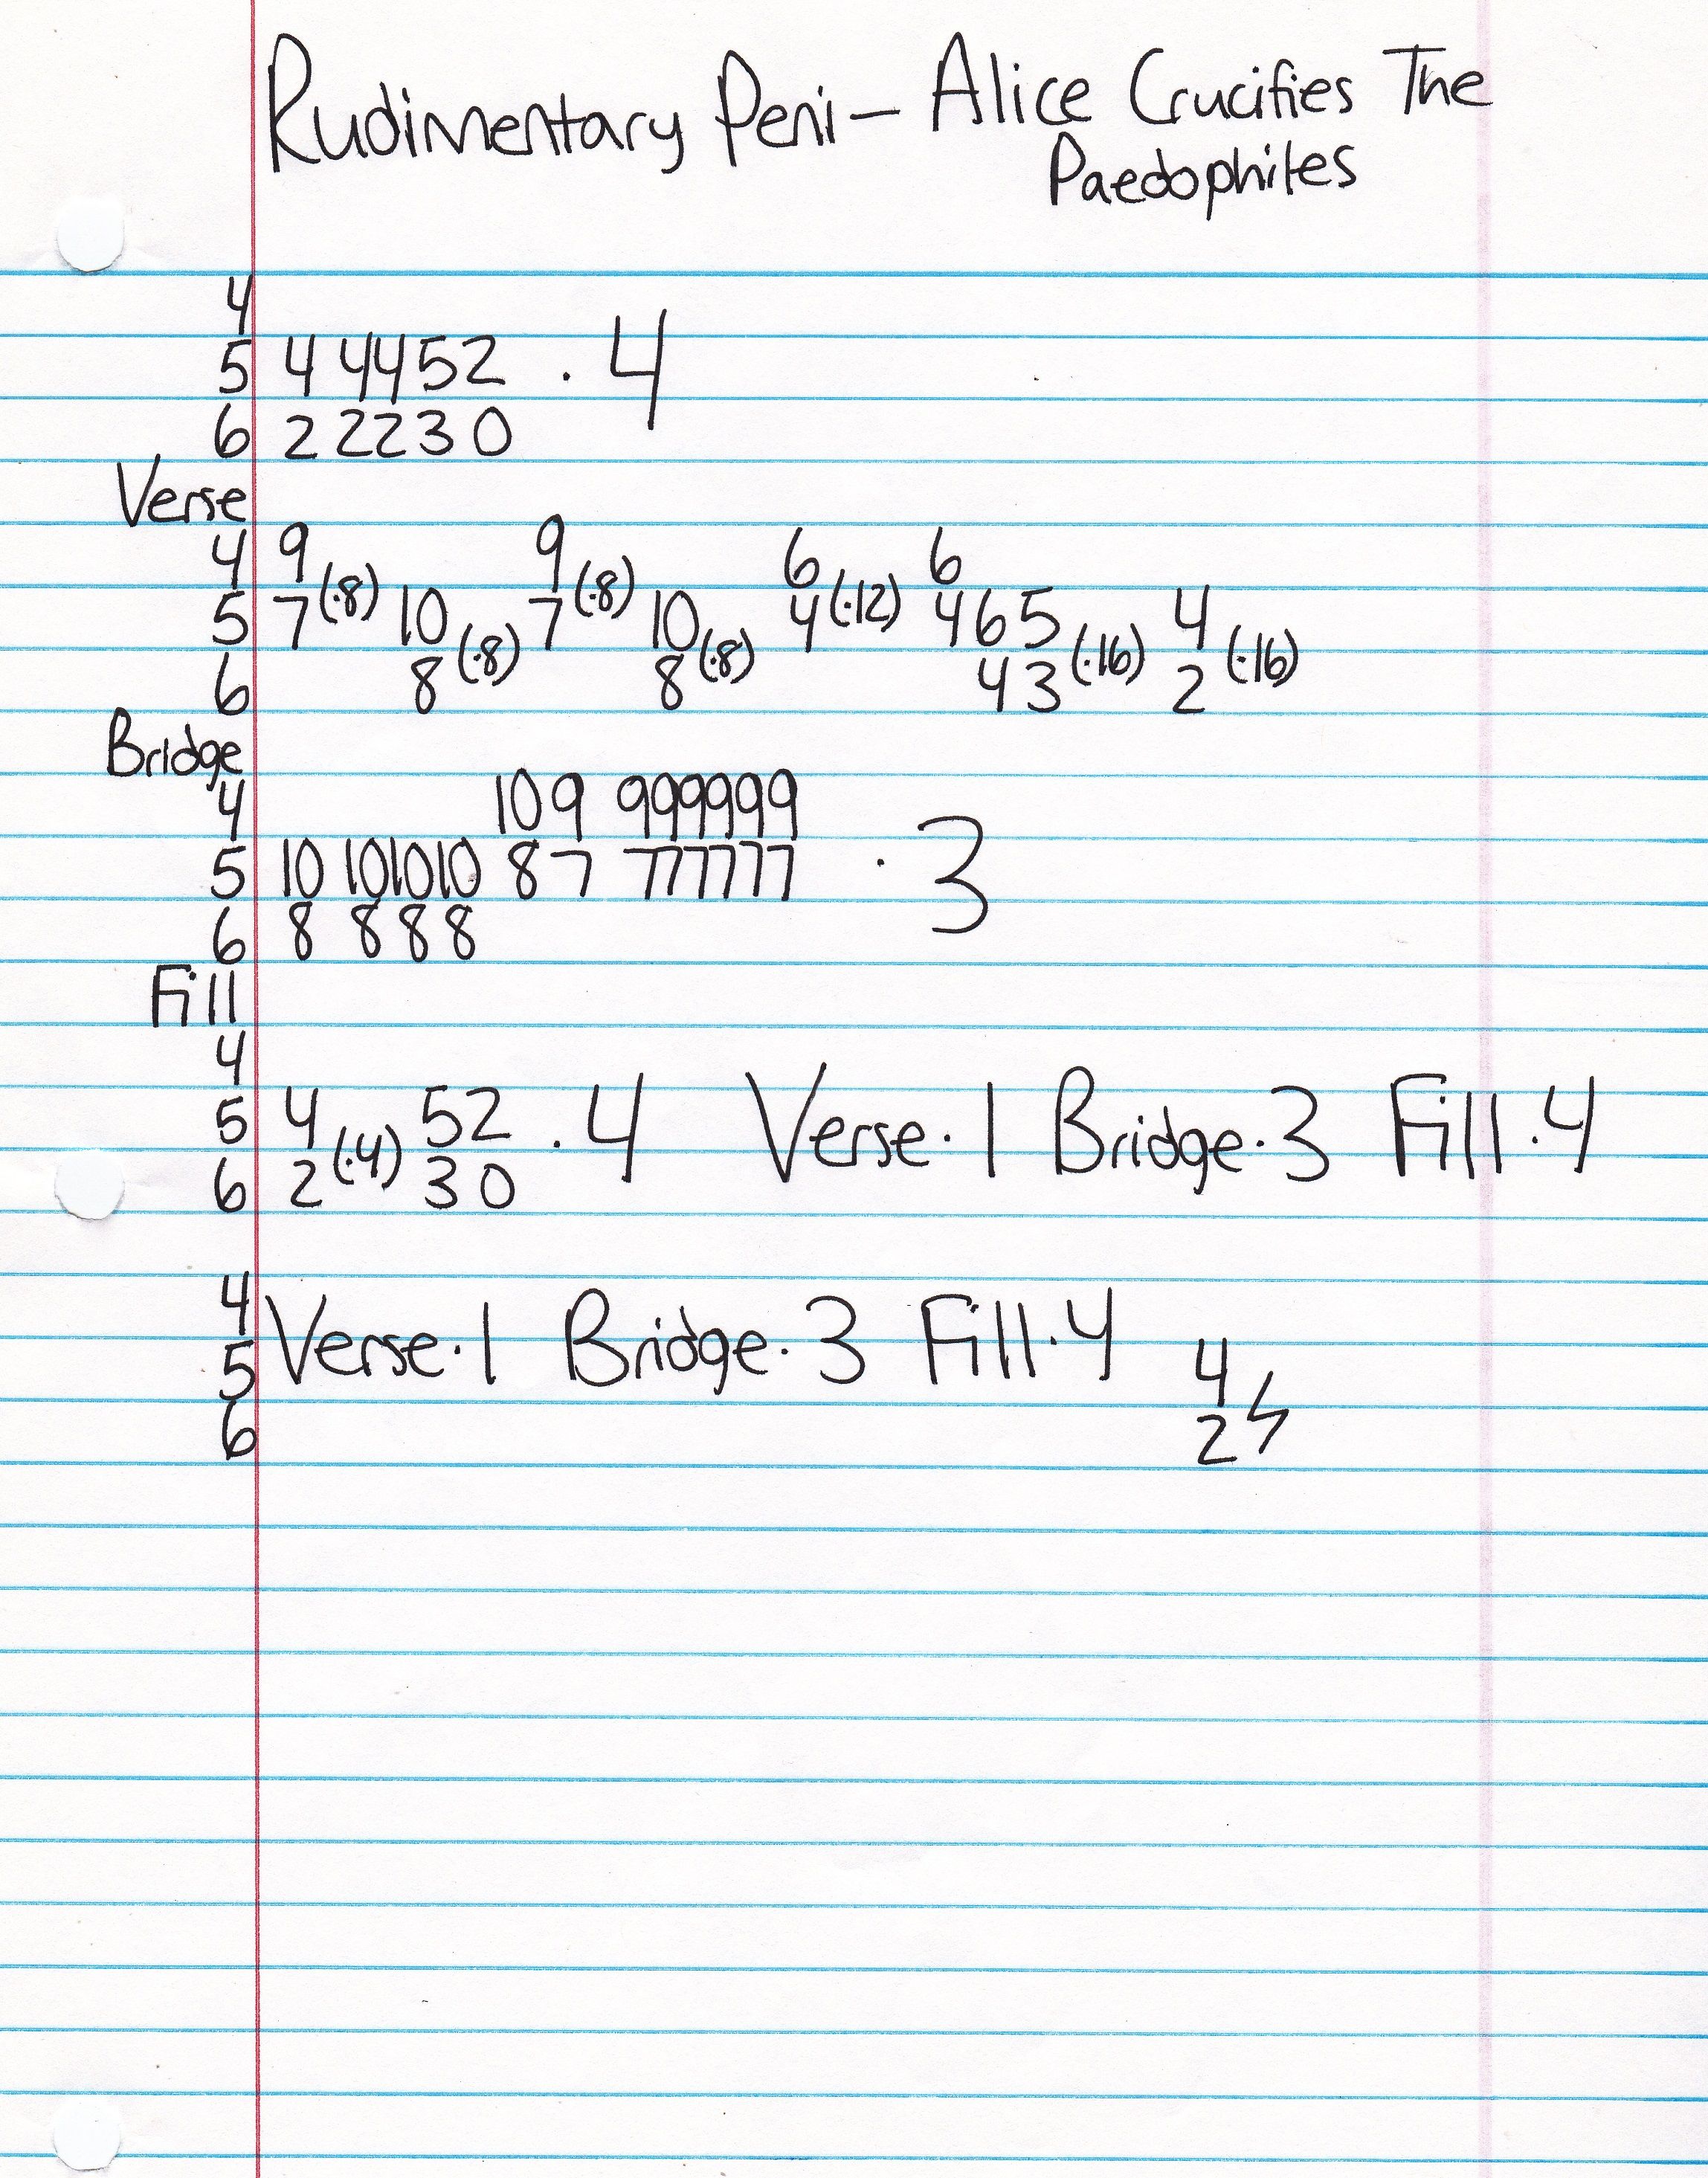 Rudimentary Peni - Alice Crucifies The
Paedophiles
4
5 4 44452 · 4
6 2 2230
Verse
4 9 9 6 6
5 7 (·8) 10 7 (·8) 10 4 (·12) 4 6 5 4
6 8 (·8) 8 (·8) 4 3 (·16) 2 (·16)
Bridge
4 10 9 999999
5 10 101010 8 7 777777 · 3
6 8 8 8 8
Fill
4
5 4 52 · 4 Verse·1 Bridge·3 Fill·4
6 2 (·4) 30
4
5 Verse·1 Bridge·3 Fill·4 4
6 2